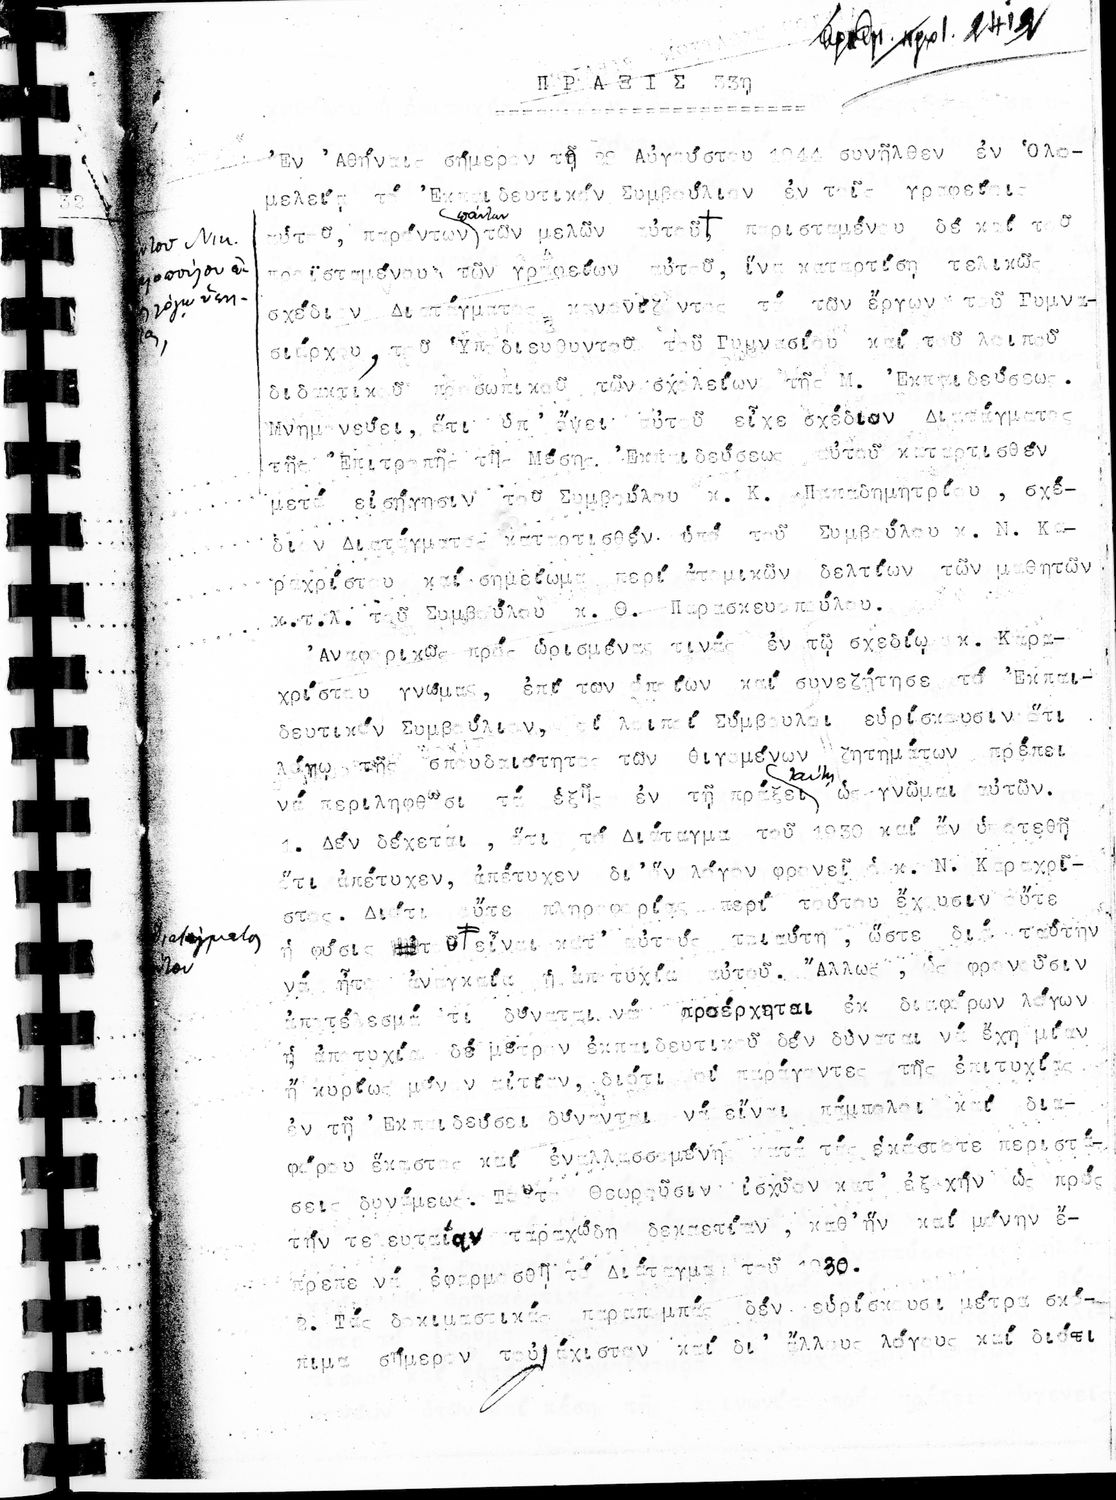 ἀριθμ. πρωτ. 2412
Π Ρ Α Ξ Ι Σ 33η
Ἐν Ἀθήναις σήμερον τῇ 22 Αὐγούστου 1944 συνῆλθεν ἐν Ὁλο-
32
μελείᾳ τό Ἐκπαιδευτικόν Συμβούλιον ἐν τοῖς γραφείοις
πάντων
αὐτοῦ, παρόντων τῶν μελῶν αὐτοῦ, παρισταμένου δέ καί τοῦ
Νικ.
προϊσταμένου τῶν γραφείων αὐτοῦ, ἵνα καταρτίσῃ τελικῶς
σχέδιον Διατάγματος κανονίζοντος τά τῶν ἔργων τοῦ Γυμνα-
σιάρχου, τοῦ Ὑποδιευθυντοῦ τοῦ Γυμνασίου καί τοῦ λοιποῦ
διδακτικοῦ προσωπικοῦ τῶν σχολείων τῆς Μ. Ἐκπαιδεύσεως.
Μνημονεύει, ὅτι ὑπ' ὄψει αὐτοῦ εἶχε σχέδιον Διατάγματος
τῆς Ἐπιτροπῆς τῆς Μέσης Ἐκπαιδεύσεως αὐτοῦ καταρτισθέν
μετά εἰσήγησιν τοῦ Συμβούλου κ. Κ. Παπαδημητρίου, σχέ-
διον Διατάγματος καταρτισθέν ὑπό τοῦ Συμβούλου κ. Ν. Κα-
ραχρίστου καί σημείωμα περί ἀτομικῶν δελτίων τῶν μαθητῶν
κ.τ.λ. τοῦ Συμβούλου κ. Θ. Παρασκευοπούλου.
Ἀναφορικῶς πρός ὡρισμένας τινάς ἐν τῷ σχεδίῳ κ. Καρα-
χρίστου γνώμας, ἐπί των ὁποίων καί συνεζήτησε τό Ἐκπαι-
δευτικόν Συμβούλιον, οἱ λοιποί Σύμβουλοι εὑρίσκουσιν ὅτι
λόγῳ τῆς σπουδαιότητος τῶν θιγομένων ζητημάτων πρέπει
ταύτῃ
νά περιληφθῶσι τά ἑξῆς ἐν τῇ πράξει ὡς γνῶμαι αὐτῶν.
1. Δέν δέχεται, ὅτι τό Διάταγμα τοῦ 1930 καί ἄν ὑποτεθῇ
ὅτι ἀπέτυχεν, ἀπέτυχεν δι' ὅν λόγον φρονεῖ ὁ κ. Ν. Καραχρῖ-
στος. Διότι οὔτε πληροφορίας περί τούτου ἔχουσιν οὔτε
διατάγματος
ἡ φύσις εἶναι κατ' αὐτούς τοιαύτη, ὥστε διά ταύτην
νά ἦτο ἀναγκαία ἡ ἀποτυχία αὐτοῦ. Ἄλλως, ὡς φρονοῦσιν
ἀποτέλεσμά τι δύναται νά προέρχηται ἐκ διαφόρων λόγων
ἡ ἀποτυχία δέ μέτρον ἐκπαιδευτικοῦ δέν δύναται νά ἔχῃ μίαν
ἤ κυρίως μόνον αἰτίαν, διότι οἱ παράγοντες τῆς ἐπιτυχίας
ἐν τῇ Ἐκπαιδεύσει δύνανται νά εἶναι πάμπολοι καί δια-
φόρου ἕκαστος καί ἐναλλασσομένης κατά τάς ἑκάστοτε περιστά-
σεις δυνάμεως. Τοῦτο θεωροῦσιν ἰσχῦον κατ' ἐξοχήν ὡς πρός
τήν τελευταίαν ταραχώδη δεκαετίαν, καθ' ἥν καί μόνην ἔ-
πρεπε νά ἐφαρμοσθῇ τό Διάταγμα τοῦ 1930.
2. Τάς δοκιμαστικάς παραπομπάς δέν εὑρίσκουσι μέτρα σκό-
πιμα σήμερον τοὐλάχιστον καί δι' ἄλλους λόγους καί διότι